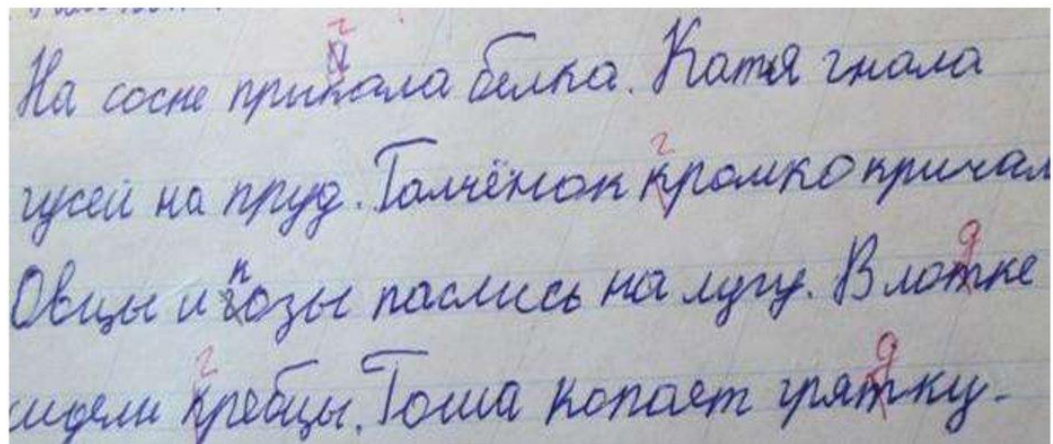 На сосне прыкала белка. Катя гнала
гусей на пруд. Галчёнок кромко кричал
Овцы и козы паслись на лугу. В лотке
сидели кребцы. Гоша копает грятку.